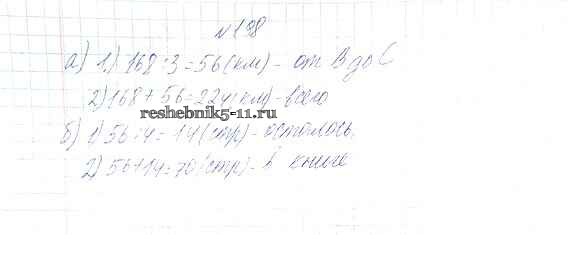 №198
а) 1) 168 : 3 = 56 (км) - от В до С
2) 168 + 56 = 224 (км) - всего
reshebnik5-11.ru
б) 1) 56 : 4 = 14 (стр) - осталось.
2) 56 + 14 = 70 (стр) - в книге